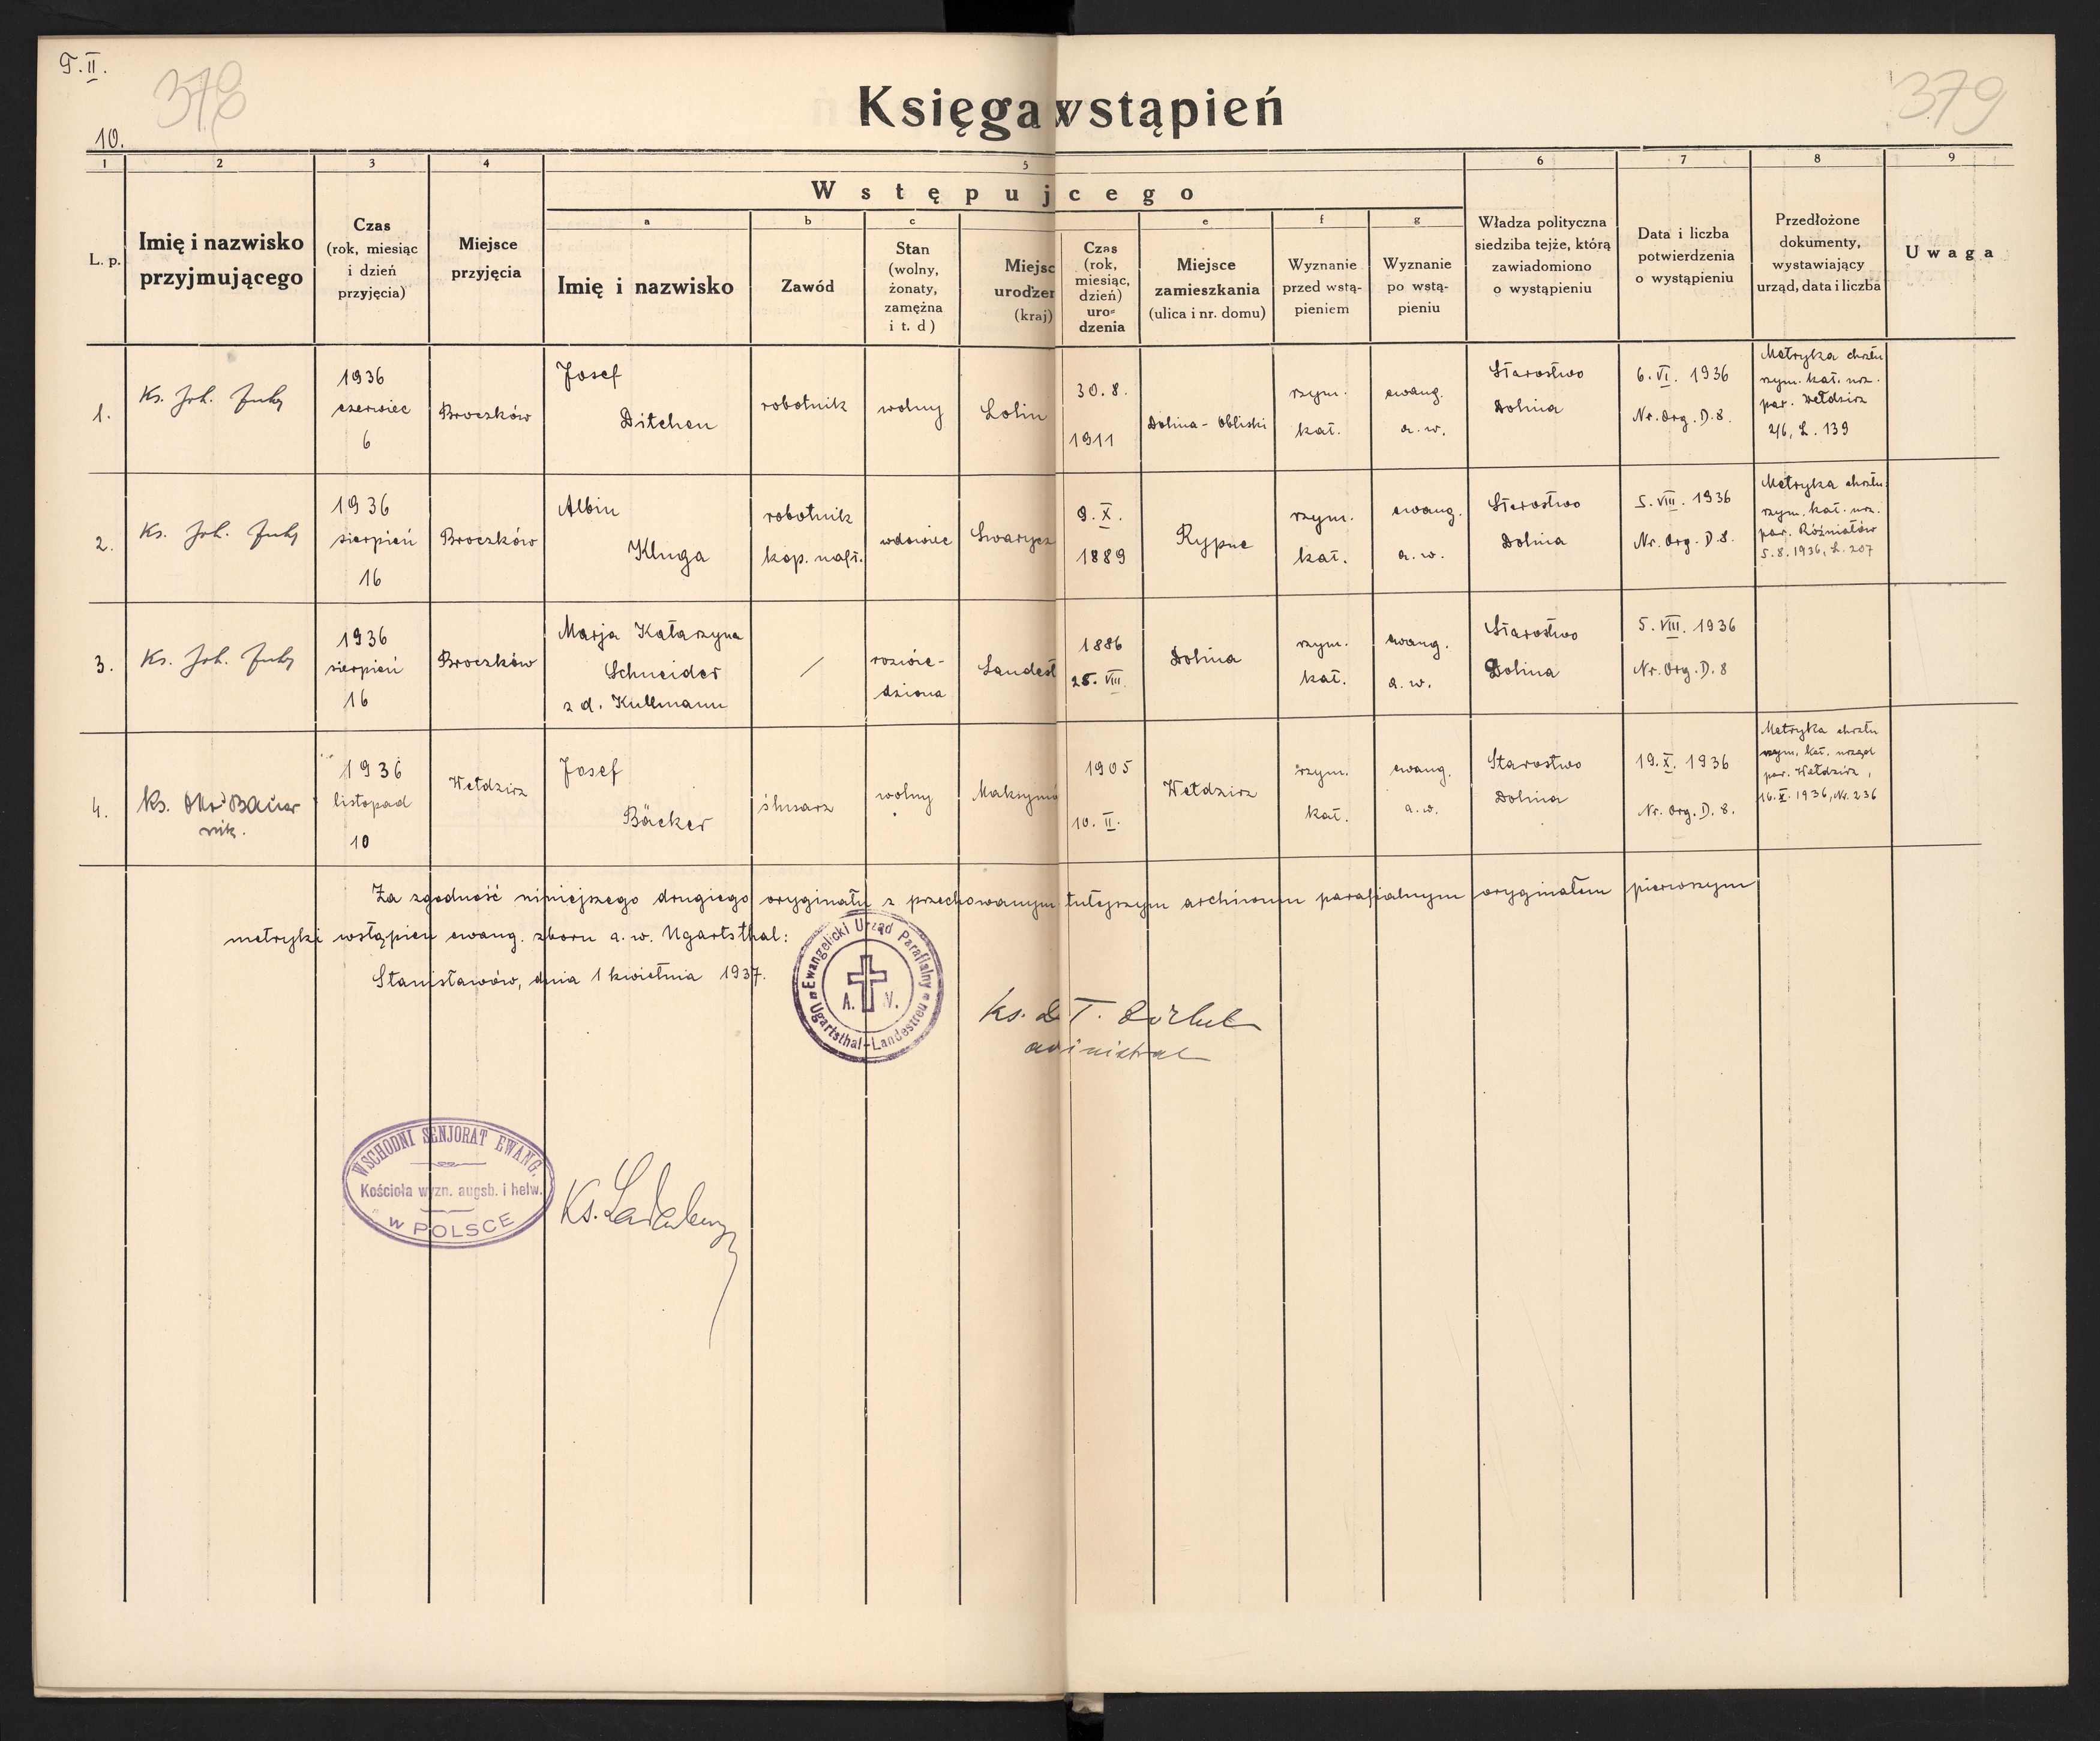 T. II.
378
379
10.
Księga wstąpień
1 2 3 4 5 6 7 8 9
Wstępujcego
a b c e f g
L. p.
Imię i nazwisko
przyjmującego
Czas
(rok, miesiąc
i dzień
przyjęcia)
Miejsce
przyjęcia
Imię i nazwisko
Zawód
Stan
(wolny,
żonaty,
zamężna
i t. d)
Miejsc
urodzen
(kraj)
Czas
(rok,
miesiąc,
dzień)
uro-
dzenia
Miejsce
zamieszkania
(ulica i nr. domu)
Wyznanie
przed wstą-
pieniem
Wyznanie
po wstą-
pieniu
Władza polityczna
siedziba tejże, którą
zawiadomiono
o wystąpieniu
Data i liczba
potwierdzenia
o wystąpieniu
Przedłożone
dokumenty,
wystawiający
urząd, data i liczba
Uwaga
1.
Ks. Joh.
1936
czerwiec
6
Broczków
Josef
Ditchen
robotnik
wolny
Lolin
30. 8.
1911
Dolina - Obliski
rzym.
kat.
ewang.
a. w.
Starostwo
Dolina
6. VI. 1936
Nr. Org. D. 8.
Metryka chrztu
rzym. kat. urz.
par. Wełdzirz
2/6, L. 139
2.
Ks. Joh.
1936
sierpień
16
Broczków
Albin
Kluga
robotnik
kop. naft.
wdowiec
Swarycz
9. X.
1889
Rypne
rzym.
kat.
ewang.
a. w.
Starostwo
Dolina
5. VIII. 1936
Nr. Org. D. 8.
Metryka chrztu
rzym. kat. urz.
par. Różniatów
5. 8. 1936, L. 207
3.
Ks. Joh.
1936
sierpień
16
Broczków
Marja Katarzyna
Schneider
z d. Kullmann
/
rozwie-
dziona
Landest
1886
25. VIII.
Dolina
rzym.
kat.
ewang.
a. w.
Starostwo
Dolina
5. VIII. 1936
Nr. Org. D. 8
4.
Ks. Bauer
wik.
1936
listopad
10
Wełdzirz
Josef
Bäcker
ślusarz
wolny
Maksymó
1905
10. II.
Wełdzirz
rzym.
kat.
ewang.
a. w.
Starostwo
Dolina
19. X. 1936
Nr. Org. D. 8.
Metryka chrztu
rzym. kat. urząd
par. Wełdzirz,
16. X. 1936, Nr. 236
Za zgodność niniejszego drugiego oryginału z przechowanym tutejszym archiwum parafialnym oryginałem pierwszym
metryki wstąpień ewang. zboru a. w. Ugartsthal:
Stanisławów, dnia 1 kwietnia 1937.
Ewangelicki Urząd Parafialny
A. V.
Ugartsthal-Landestreu
Ks.
WSCHODNI SENJORAT EWANG.
Kościoła wyzn. augsb. i helw.
w POLSCE
Ks.